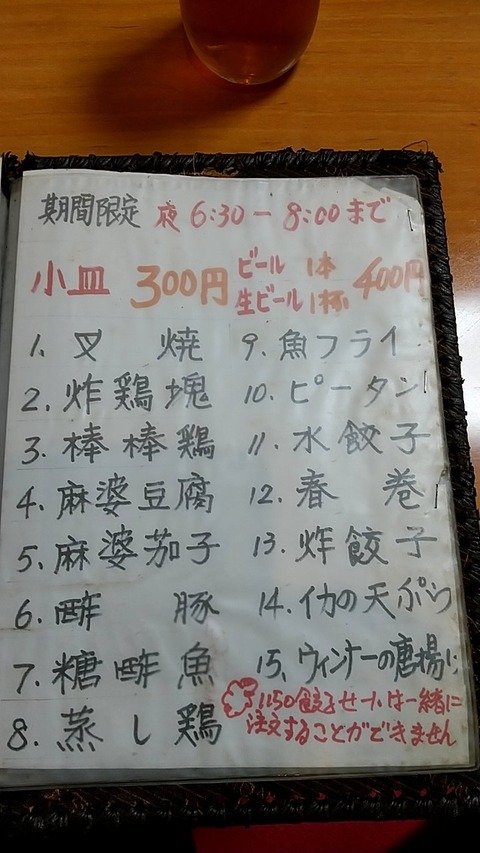 期間限定 夜 6:30ー8:00まで
小皿 300円 ビール 1本 生ビール 1杯 400円
1. 叉 焼
2. 炸鶏塊
3. 棒棒鶏
4. 麻婆豆腐
5. 麻婆茄子
6. 酢 豚
7. 糖酢魚
8. 蒸し鶏
9. 魚フライ
10. ピータン
11. 水餃子
12. 春 巻
13. 炸餃子
14. イカの天ぷら
15. ウィンナーの唐揚
1150餃子セールは一緒に
注文することができません